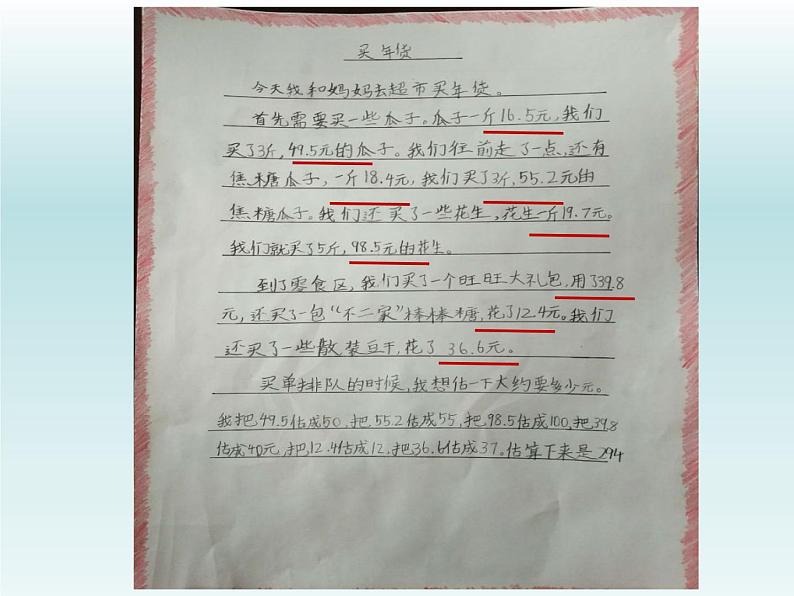 买年货
今天我和妈妈去超市买年货。
首先需要买一些瓜子。瓜子一斤16.5元,我们
买了3斤,49.5元的瓜子。我们往前走了一点,还有
焦糖瓜子,一斤18.4元,我们买了3斤,55.2元的
焦糖瓜子。我们还买了一些花生,花生一斤19.7元。
我们就买了5斤,98.5元的花生。
到了零食区,我们买了一个旺旺大礼包,用了39.8
元,还买了一包“不二家”棒棒糖,花了12.4元。我们
还买了一些散装豆干,花了36.6元。
买单排队的时候,我想估一下大约要多少元。
我把49.5估成50,把55.2估成55,把98.5估成100,把39.8
估成40元,把12.4估成12,把36.6估成37。估算下来是294